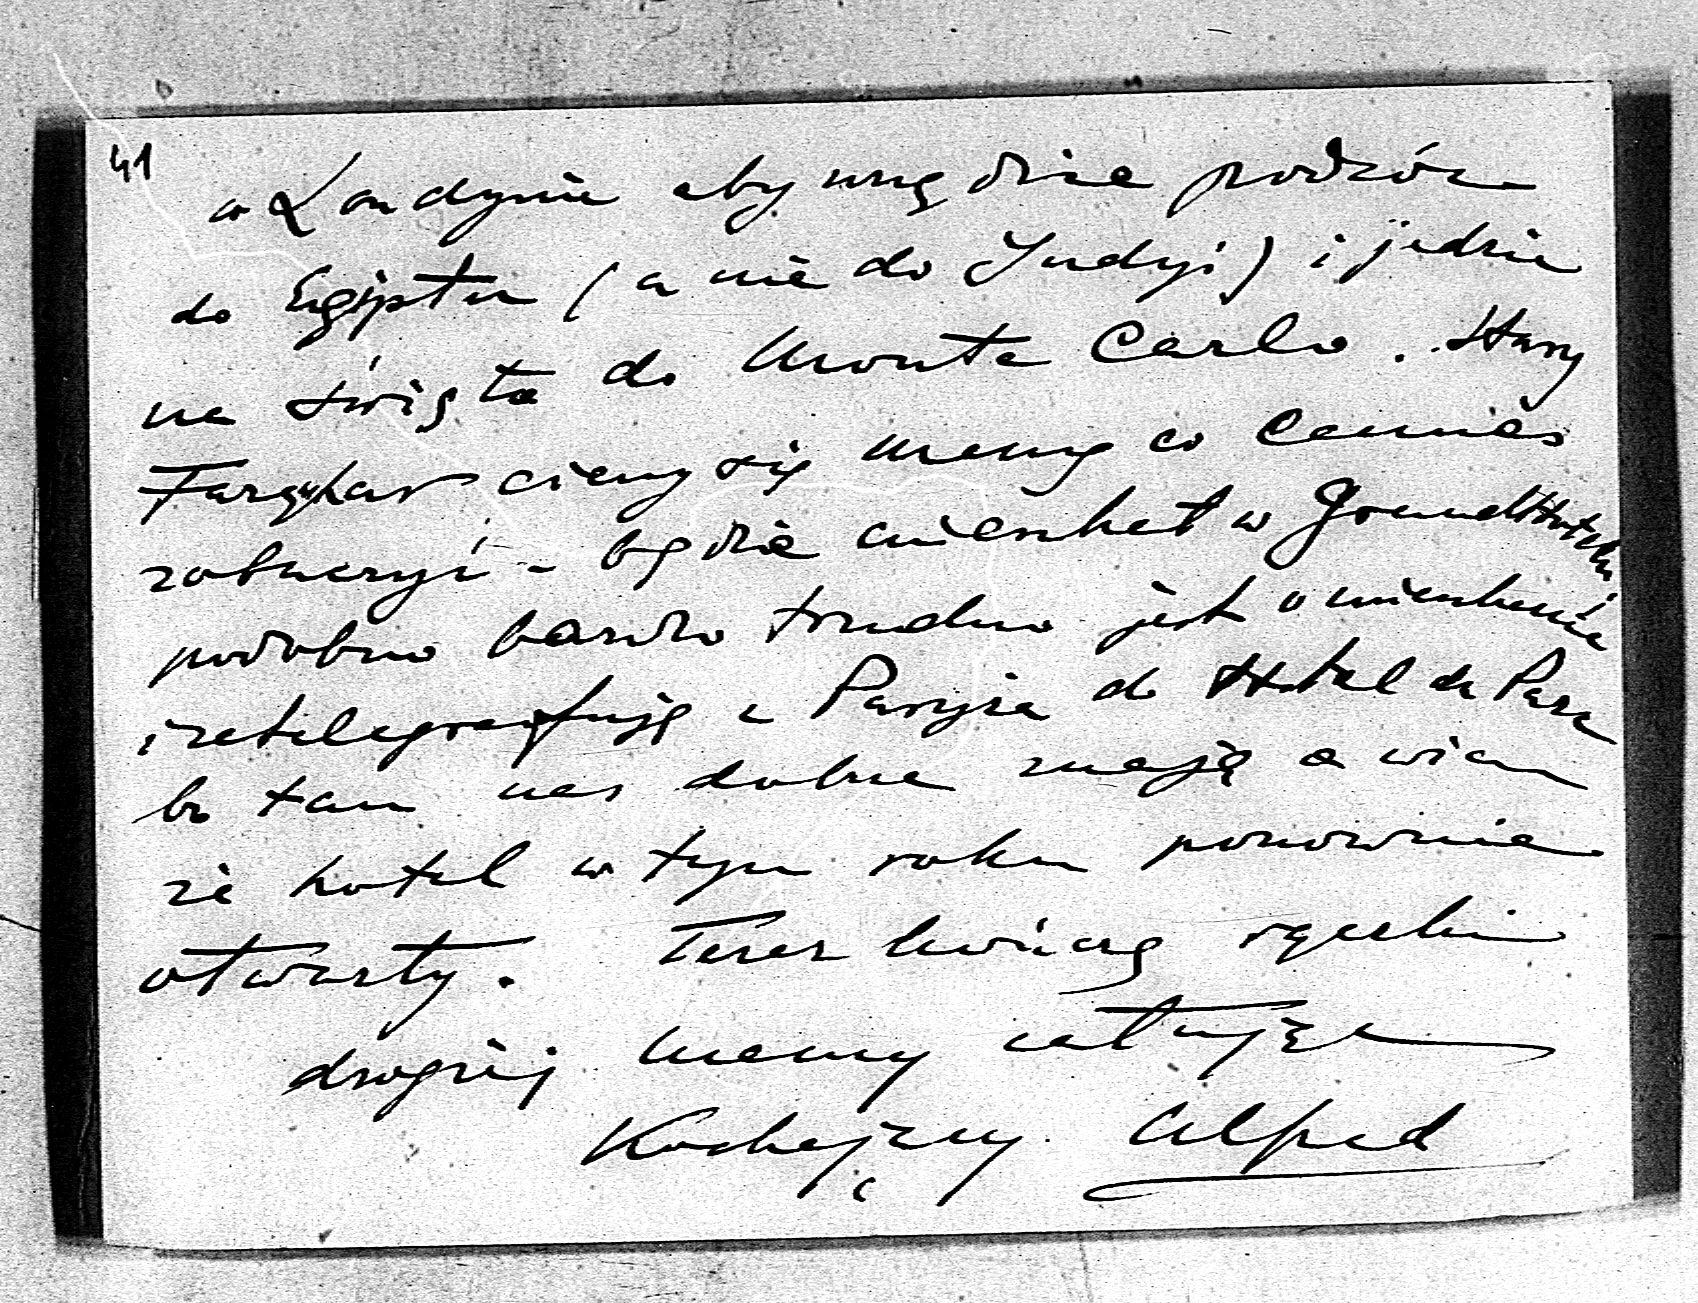 41
w Londynie aby urządzić podróż
do Egiptu (a nie do Indyi) i jedzie
na święta do Monte Carlo. Stary
Farquhar cieszy się Mamę co Cannes
zobaczyć - będzie mieszkał w Grand Hotelu
podobno bardzo trudno jest o mieszkanie
i zatelegrafuję z Paryża do Hotel de Parc
bo tam nas dobrze znają a wiem
że hotel w tym roku ponownie
otwarty. Teraz kończę rączki
drogiej Mamy całując
Kochający Alfred